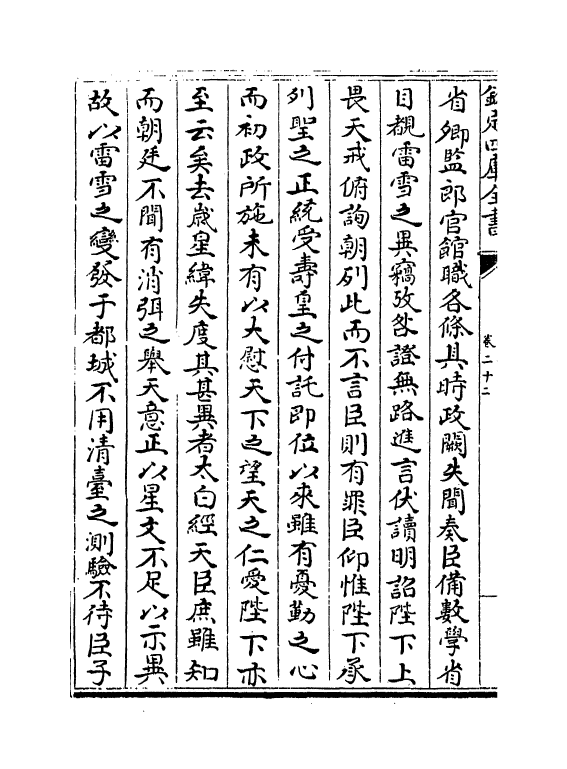 欽定四庫全書
卷二十二
省卿監郎官館職各條具時政闕失聞奏臣備數學省
目覩雷雪之異竊攷咎證無路進言伏讀明詔陛下上
畏天戒俯詢朝列此而不言臣則有罪臣仰惟陛下承
列聖之正統受壽皇之付託即位以來雖有憂勤之心
而初政所施未有以大慰天下之望天之仁愛陛下亦
至云矣去歲星緯失度其甚異者太白經天臣庶雖知
而朝廷不聞有消弭之舉天意正以星文不足以示異
故以雷雪之變發于都城不用清臺之測驗不待臣子